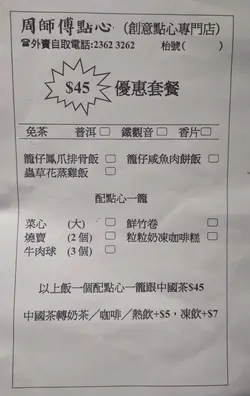 周師傅點心(創意點心專門店)
☎外賣自取電話:2362 3262 枱號( )
$45 優惠套餐
免茶 普洱 □ 鐵觀音 □ 香片 □
籠仔鳳爪排骨飯 □ 籠仔咸魚肉餅飯 □
蟲草花蒸雞飯 □
配點心一籠
菜心 (大) □ 鮮竹卷 □
燒賣 (2個) □ 粒粒奶凍咖啡糕 □
牛肉球 (3個) □
以上飯一個配點心一籠跟中國茶$45
中國茶轉奶茶/咖啡/熱飲+$5,凍飲+$7